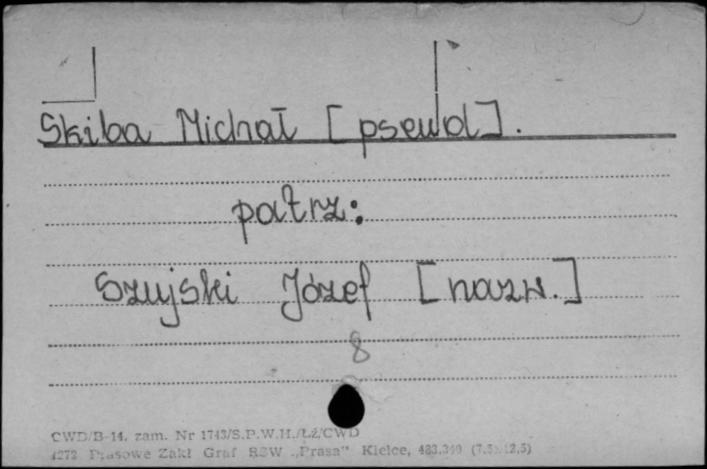 Skiba Michał [pseud].
patrz:
Szujski Józef [nazw.]
8
CWD/B-14. zam. Nr 1743/S.P.W.H./ŁŻ/CWD
4272 Prasowe Zakł Graf RSW „Prasa" Kielce, 483.340 (7,5x12,5)